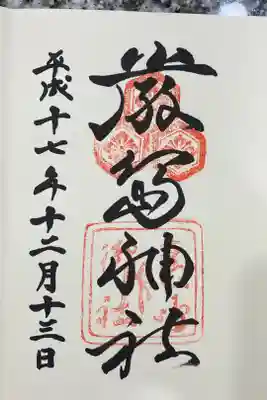 厳島神社
平成十七年十二月十三日